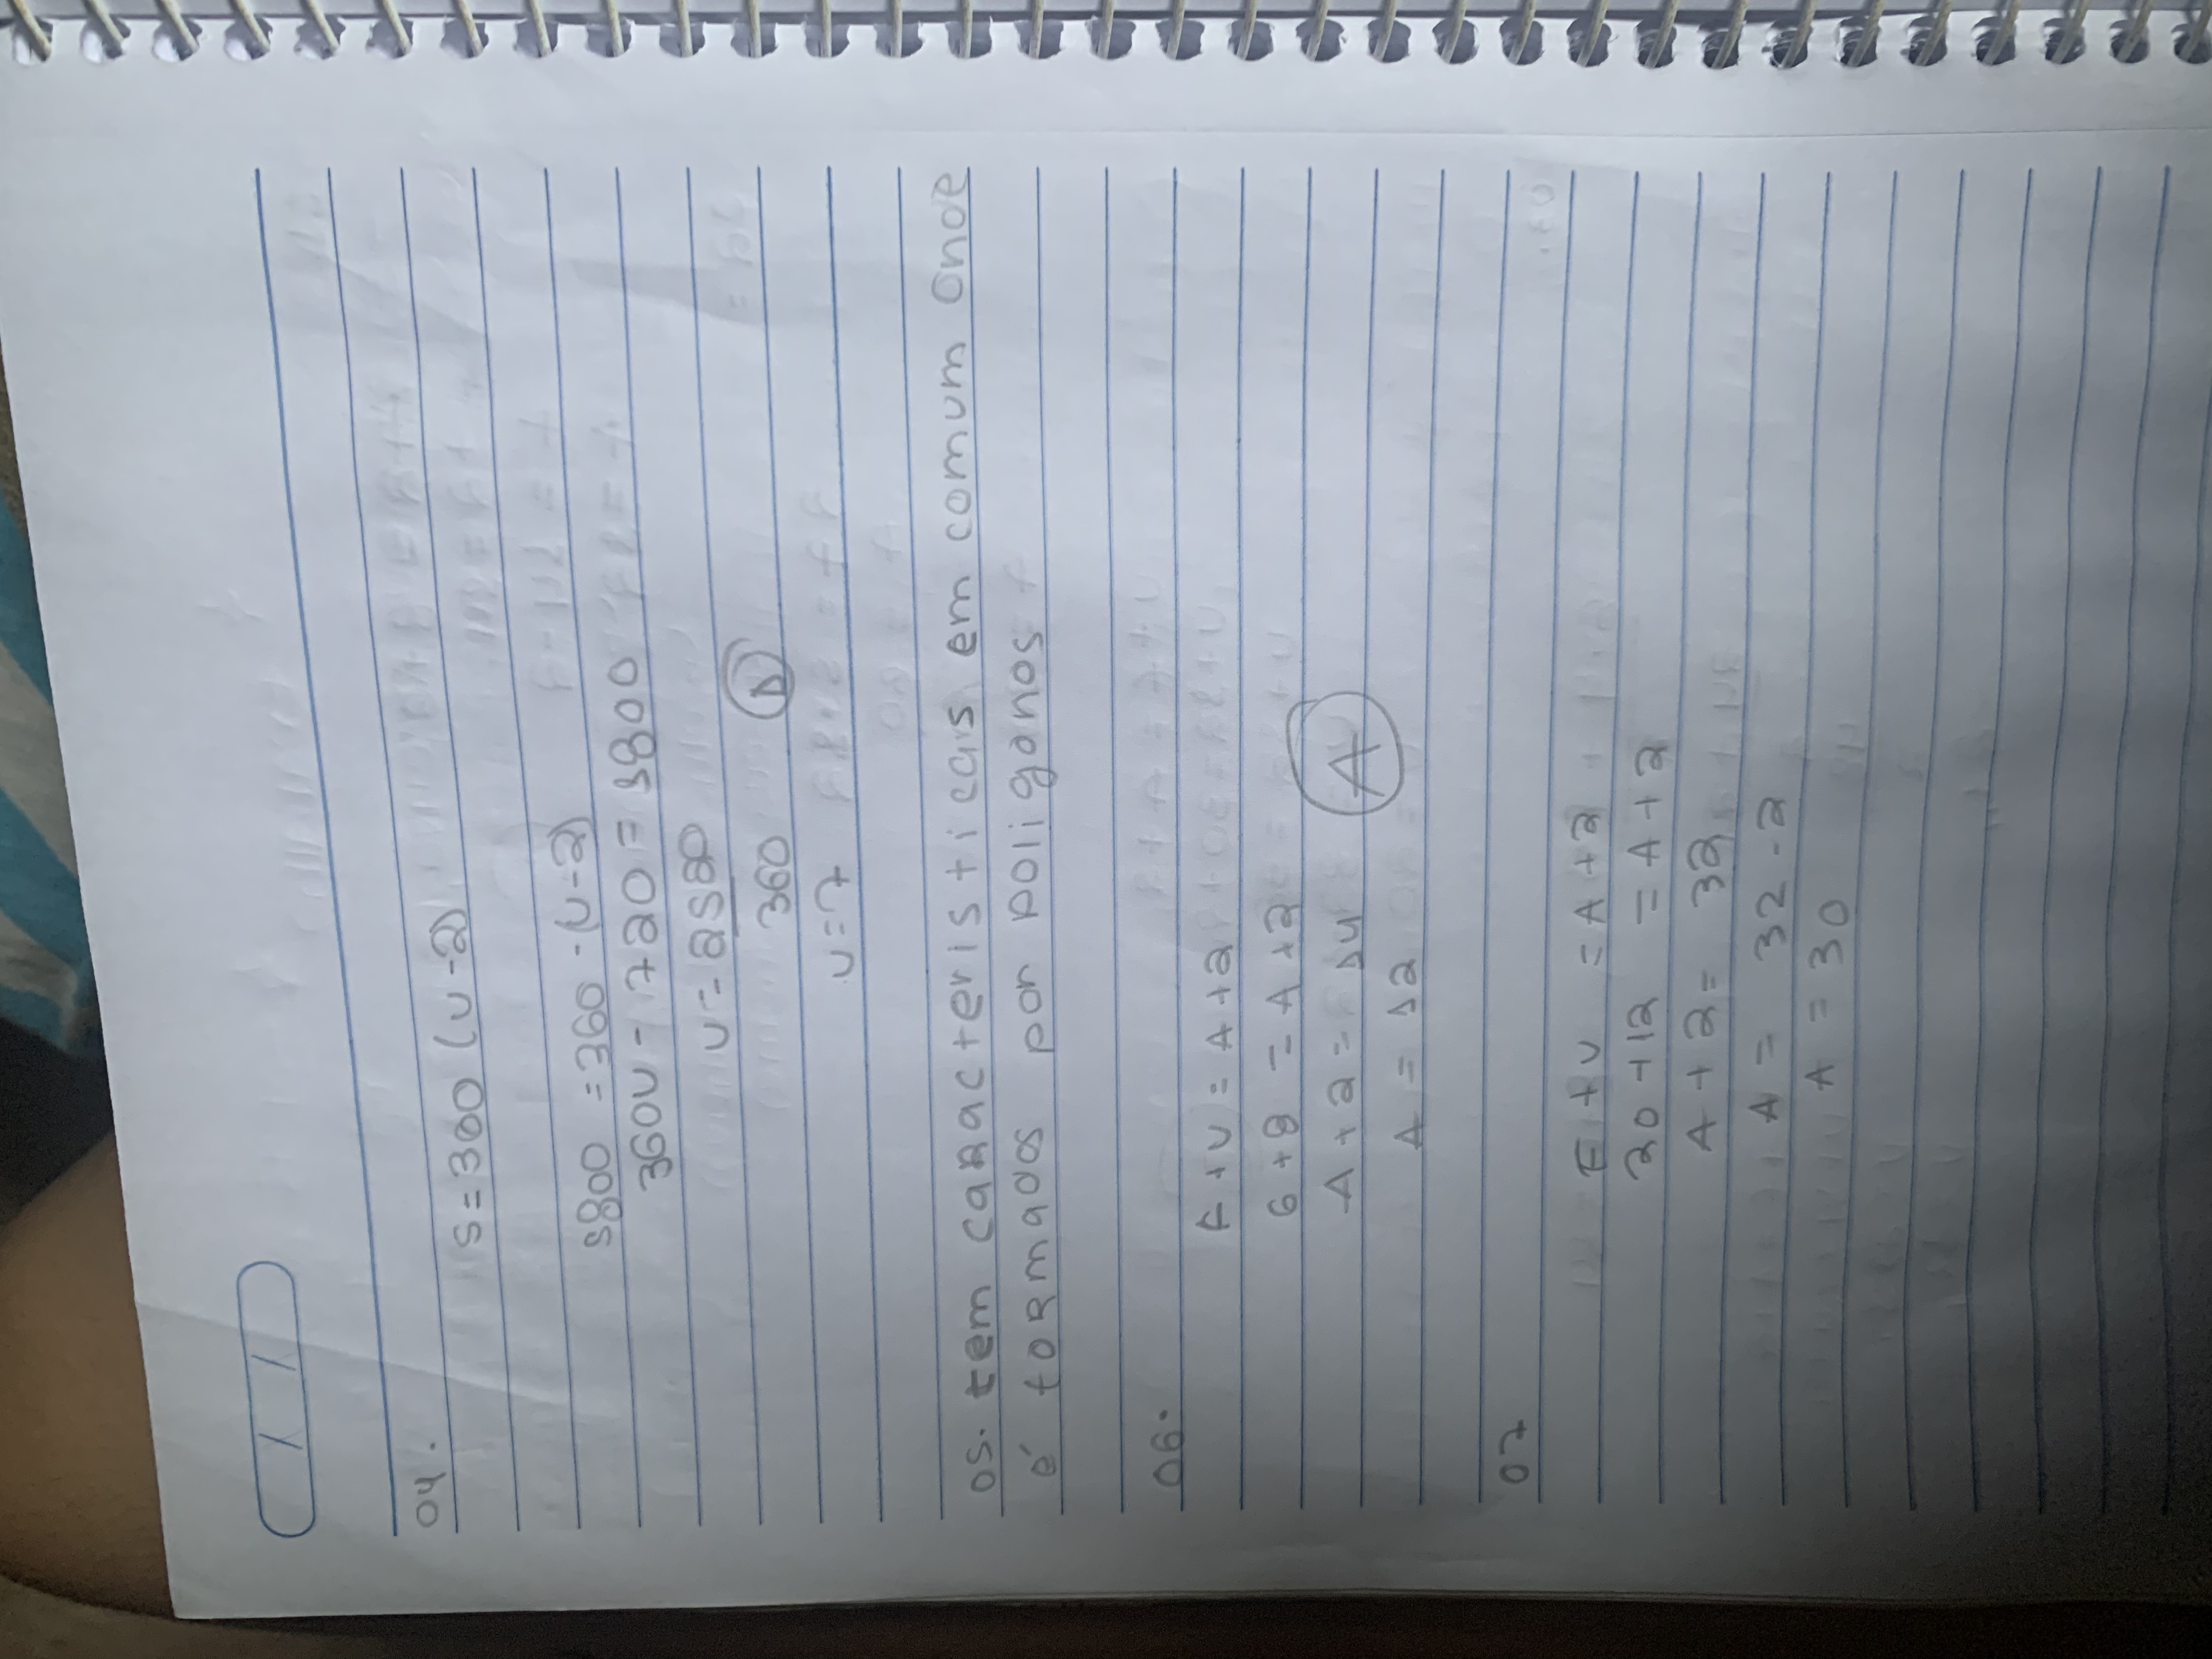 04.
S=360 (V-2)
1800 =360 ·(V-2)
360V - 720 = 1800
V = 2520
360 D
V=7
05. tem caracteristicas em comum onde
é formados por poligonos
06.
F +V = A +2
6 +8 = A +2
A + 2 = 14 A
A = 12
07
F +V = A +2
20 +12 = A +2
A + 2 = 32
A = 32 - 2
A = 30